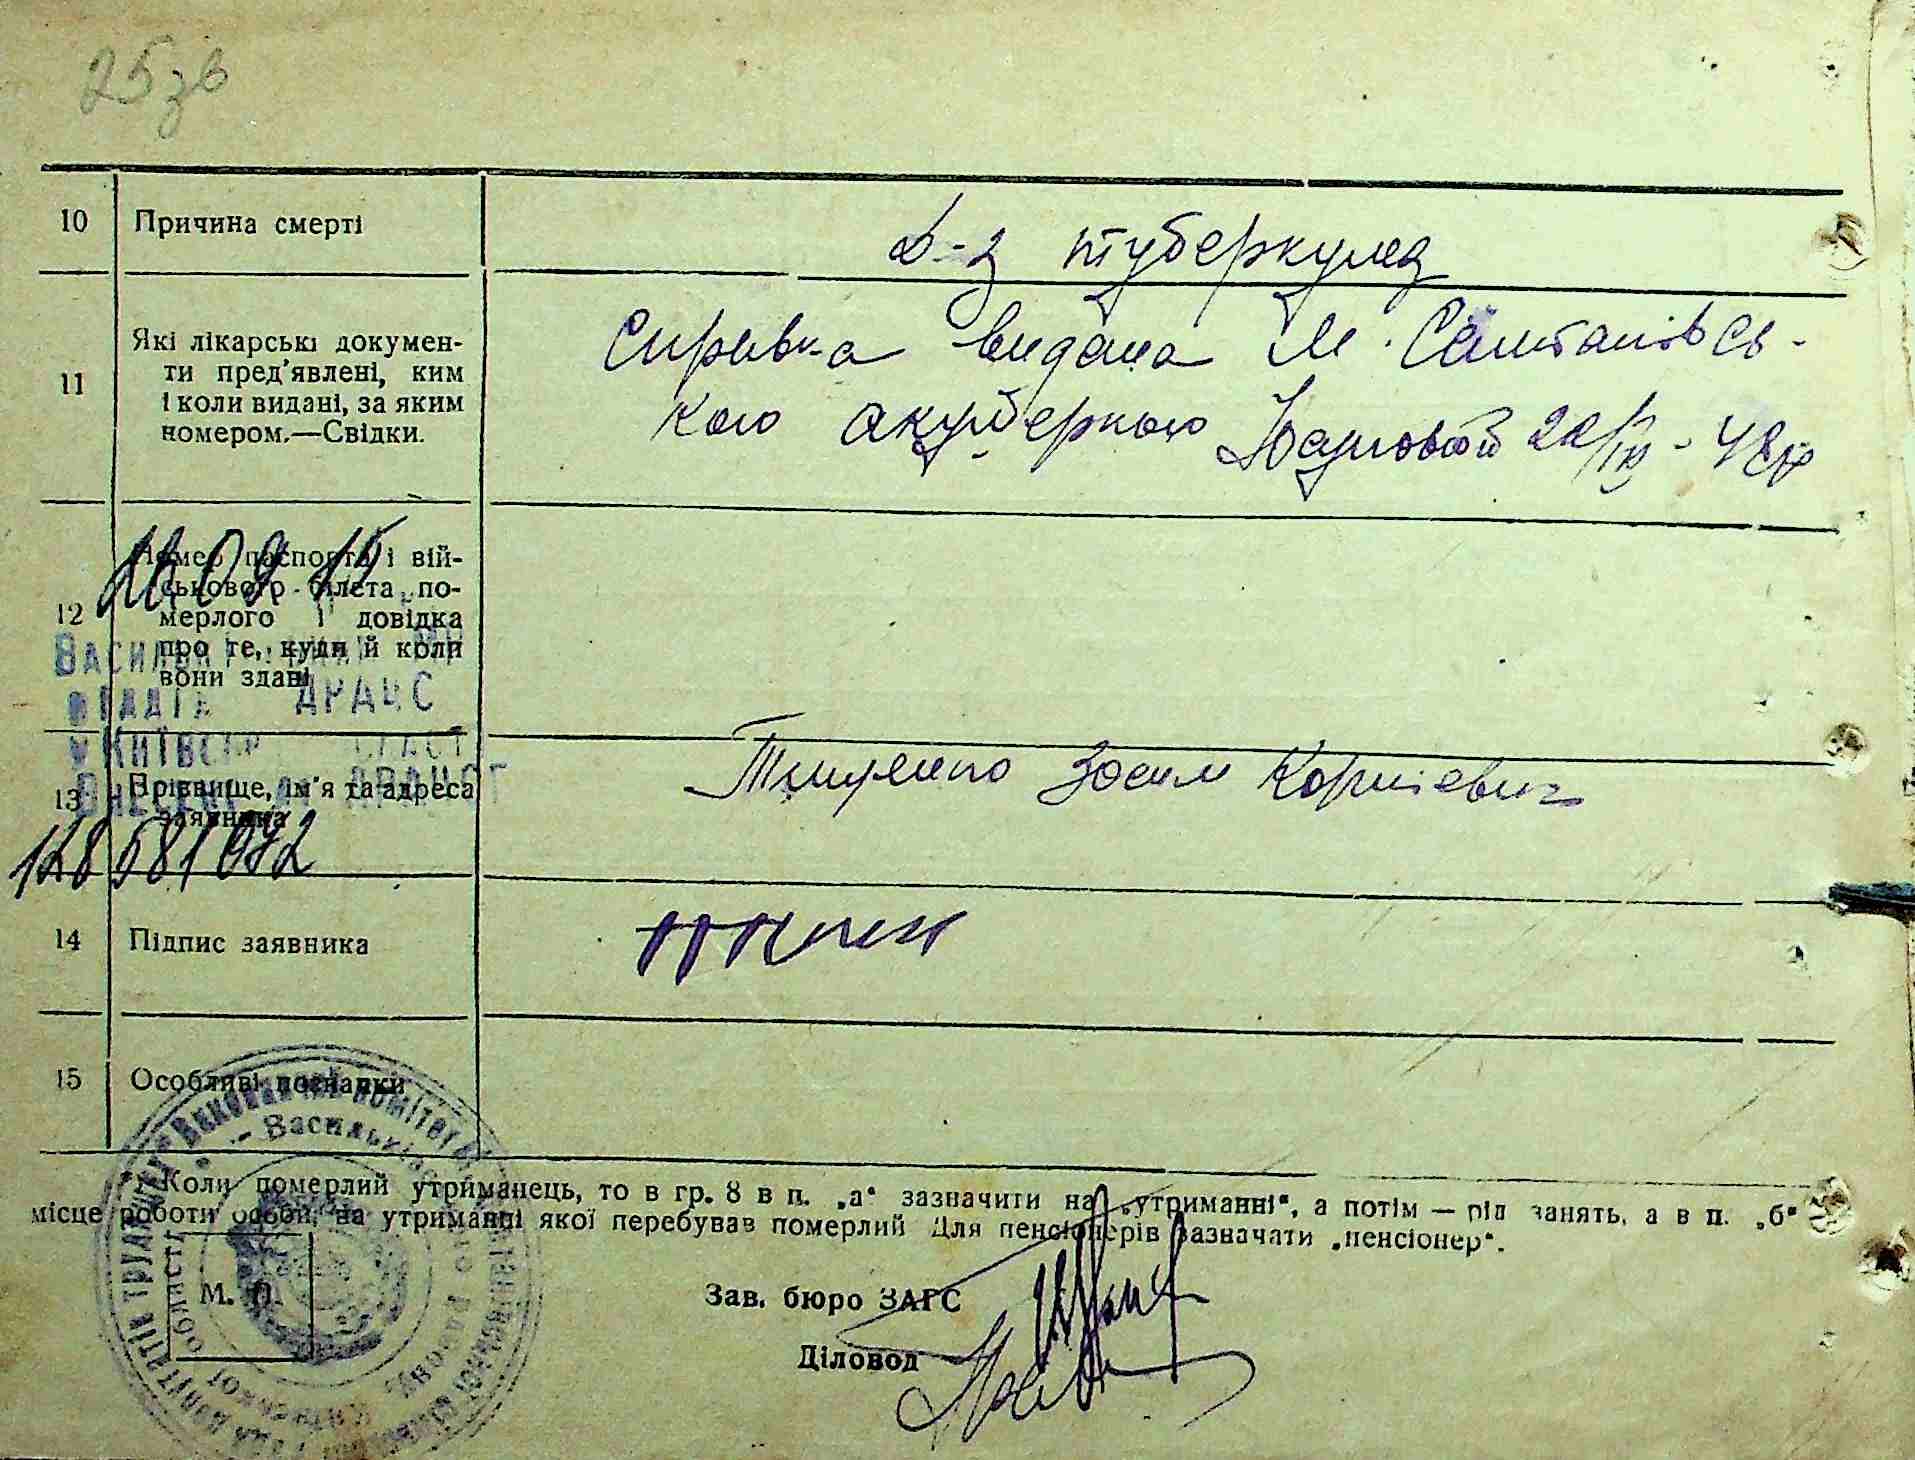 25зв
10 Причина смерті Д-з туберкулез
11 Які лікарські докумен-
ти пред'явлені, ким
і коли видані, за яким
номером.—Свідки.
Справка видана М. Салтанівсь-
кою акушеркою 20/IV - 48р
12 Номер паспорта і вій-
ськового білета по-
мерлого і довідка
про те, куди й коли
вони здані
26 09 15
Васильківський
ДРАЦС
Київській
128581072
13 Прізвище, ім'я та адреса
заявника
Тищенко Зосим Корнієвич
14 Підпис заявника
15 Особливі познанки
Коли померлий утриманець, то в гр. 8 в п. „а“ зазначити на „утриманні“, а потім — рід занять, а в п. „б“
місце роботи особи, на утриманні якої перебував померлий Для пенсіонерів зазначати „пенсіонер“.
М. П.
Зав. бюро ЗАГС
Діловод